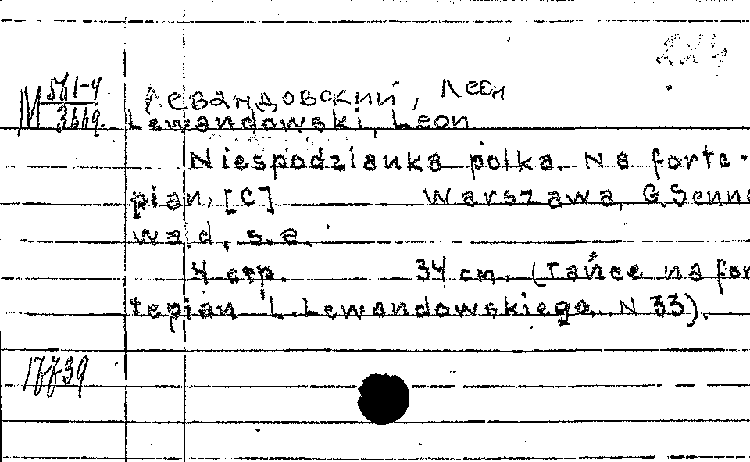 224
М 561-4
3669.
Левандовский, Леон
Lewandowski, Leon
Niespodzianka polka. Na forte-
pian, [C] Warszawa, G. Senne
wald, s.a.
4 стр. 34 cm. (Tańce na for
tepian L. Lewandowskiego. N 33).
17739